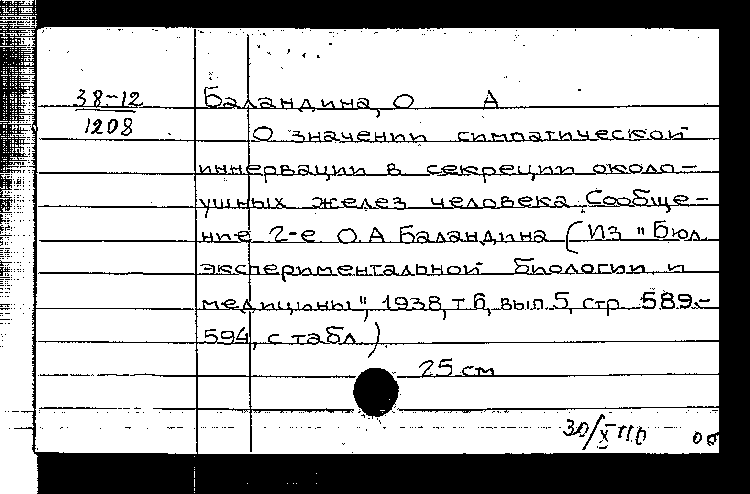 38-12
1208
Баландина, О А
О значении симпатической
иннервации в секреции около-
ушных желез человека Сообще-
ние 2-е О.А Баландина (Из "Бюл.
экспериментальной биологии и
медицины", 1938, т 6, вып. 5, стр 589.-
594, с табл.)
25 см
30/X